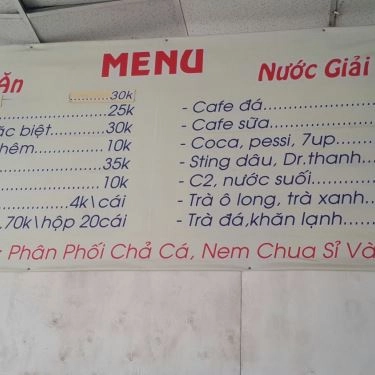 MENU
Ăn
Nước Giải
30k
25k
ặc biệt..........30k
hêm..............10k
35k
10k
4k\cái
70k\hộp 20cái
- Cafe đá
- Cafe sữa
- Coca, pessi, 7up
- Sting dâu, Dr.thanh
- C2, nước suối
- Trà ô long, trà xanh
- Trà đá,khăn lạnh
Phân Phối Chả Cá, Nem Chua Sỉ Và